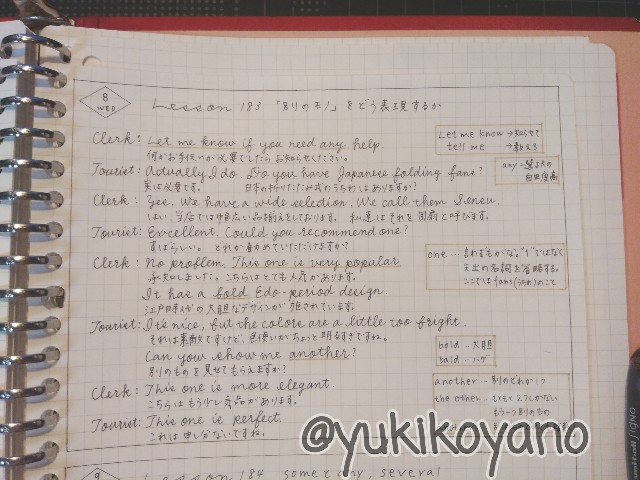 8
WED
Lesson 183 「別のモノ」をどう表現するか
Clerk: Let me know if you need any help.
何かお手伝いが必要でしたらお知らせください。
Let me know →知らせて
tell me →教えろ
Tourist: Actually I do. Do you have Japanese folding fans?
実は必要です。 日本の折りたたみ式のうちわはありますか?
any…選択の
Clerk: Yes. We have a wide selection. We call them Sensu.
はい、当店では幅広い品揃えをしております。 私達はそれを扇子と呼びます。
Tourist: Excellent. Could you recommend one?
すばらしい。 どれか薦めていただけますか?
Clerk: No problem. This one is very popular
承知しました。こちらはとても人気があります。
one…言わずもがな。"1"ではなく
先出の名詞を省略する。
ここではfans(うちわ)のこと
It has a bold Edo-period design.
江戸時代の大胆なデザインが施されています。
Tourist: It's nice, but the colors are a little too bright.
それは素敵ですけど、色使いがちょっと明るすぎですね。
Can you show me another?
別のものを見せてもらえますか?
bold…大胆
bald…ハゲ
Clerk: This one is more elegant.
こちらはもう少し気品があります。
another…別のどれか1つ
the other…もともと2つしかない
もう一つ別のもの
Tourist: This one is perfect.
これは申し分ないですね。
@yukikoyano
9
Lesson 184 some と any, several